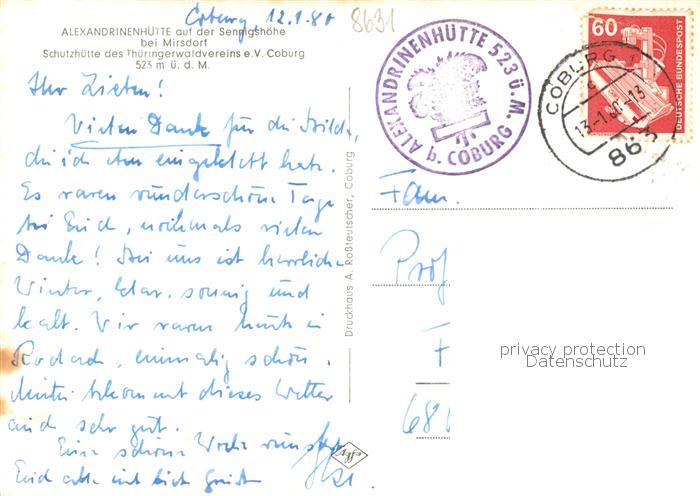 Coburg, 12.1.80
8631
ALEXANDRINENHÜTTE auf der Sennigshöhe
bei Mirsdorf
Schutzhütte des Thüringerwaldvereins e.V. Coburg
523 m ü. d. M.
Ihr Lieben!
Vielen Dank für die Bilder,
die ich schon eingeklebt habe.
Es waren wunderschöne Tage
bei Euch, nochmals vielen
Dank! Bei uns ist herrlicher
Winter, klar, sonnig und
kalt. Wir waren heute in
Rodach, einmalig schön.
bekommt dieses Wetter
auch sehr gut.
Eine schöne Woche wünscht
Euch
Druckhaus A. Roßteutscher, Coburg
Agfa
ALEXANDRINENHÜTTE 523 Ü. M.
b. COBURG
COBURG 1
c
13.-1.80-13
863
60
DEUTSCHE BUNDESPOST
Fam.
Prof
F
68
privacy protection
Datenschutz